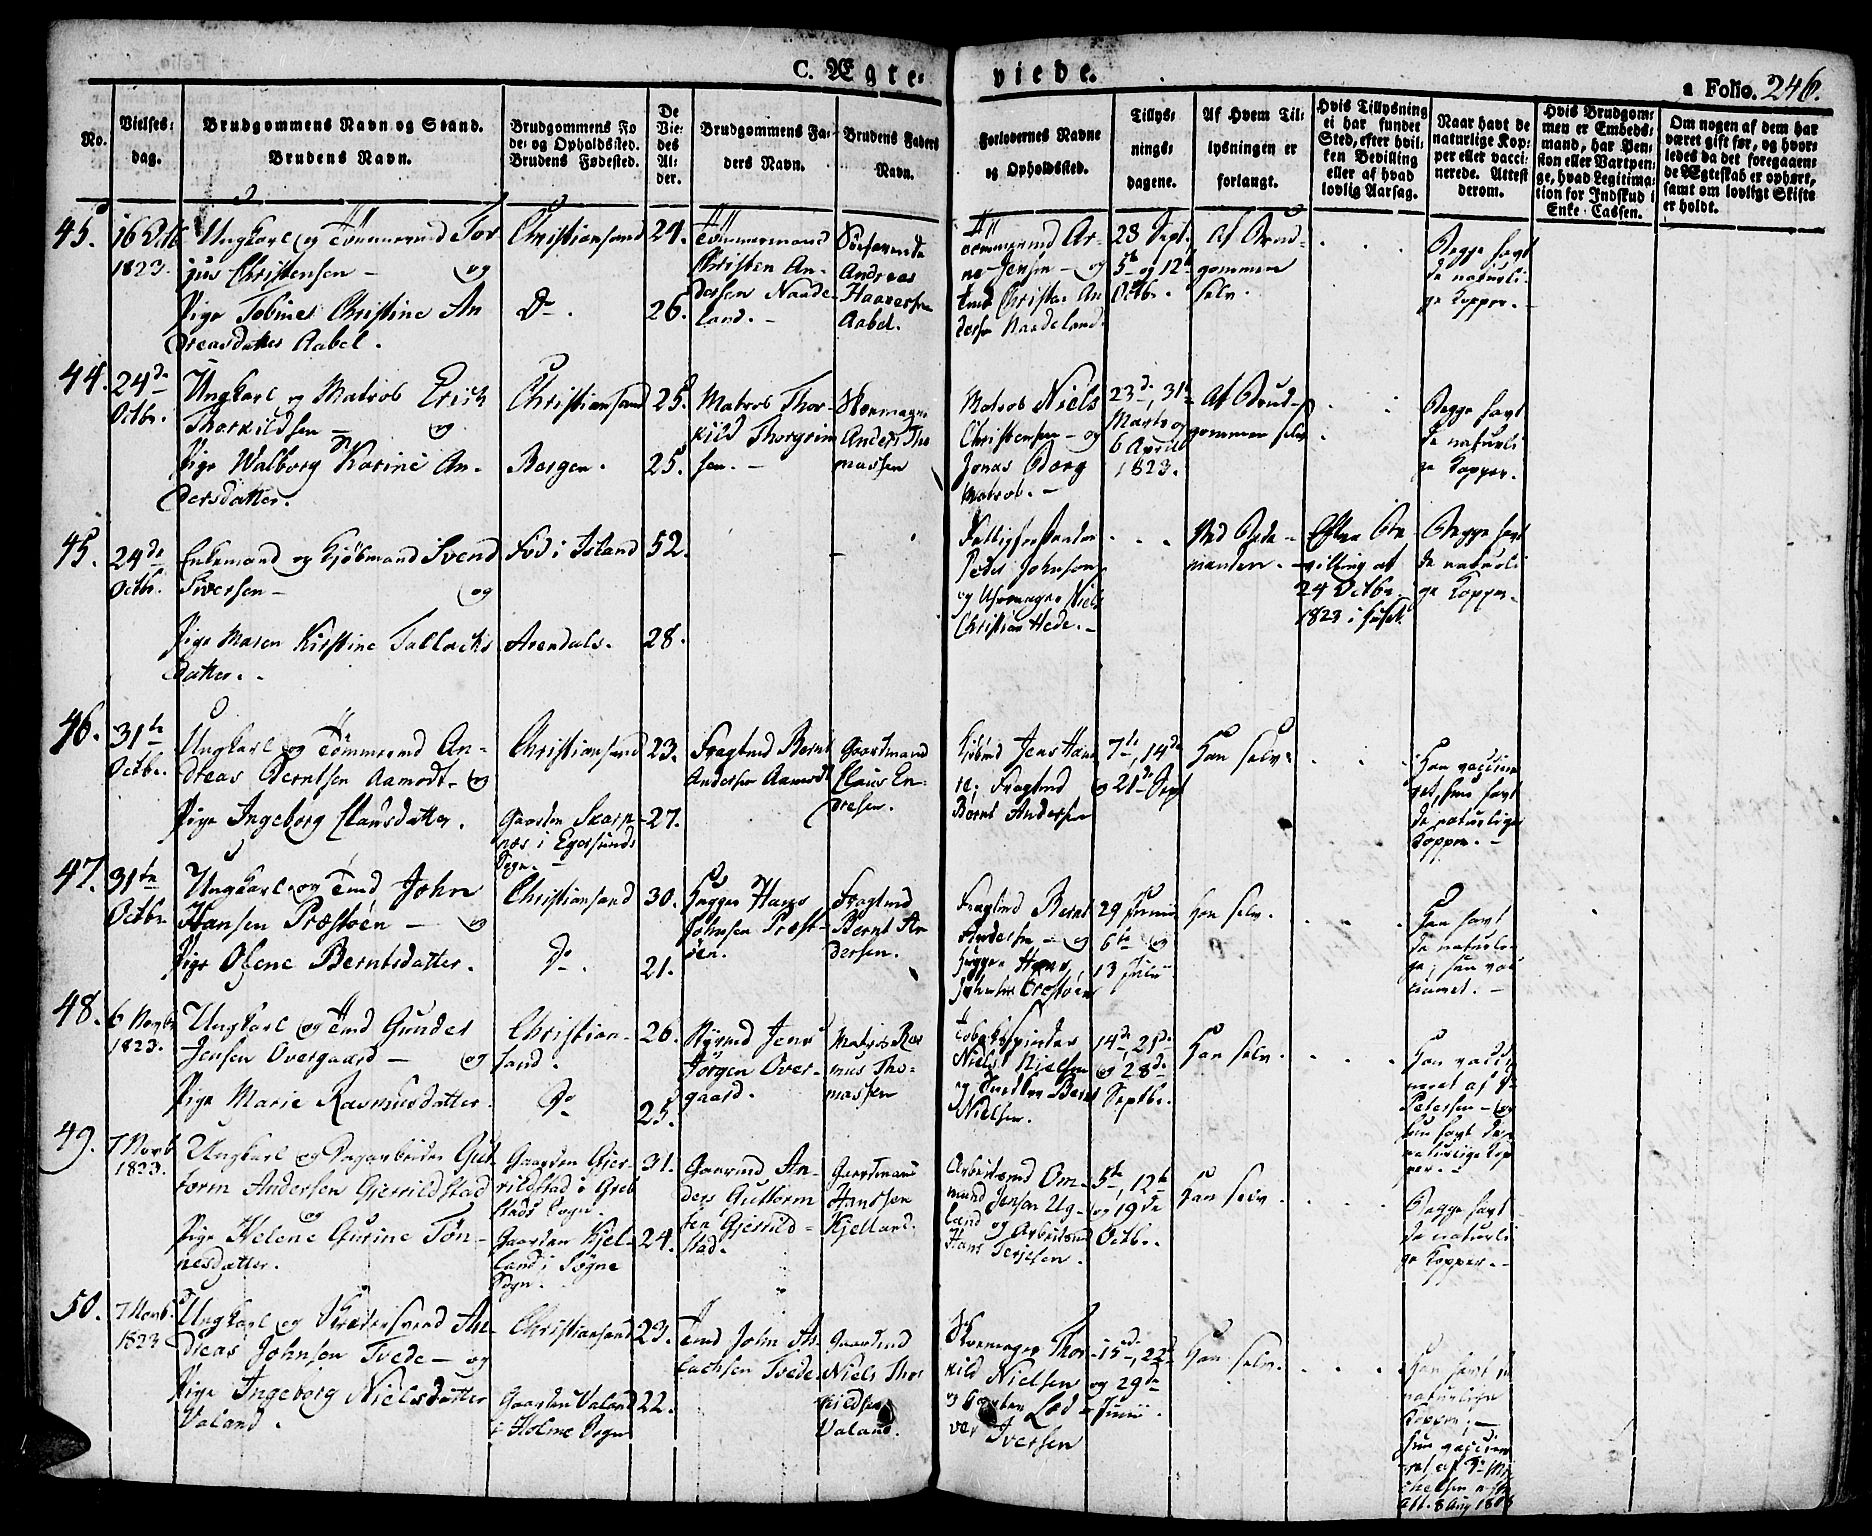 C. Ægte-
viede.
a Folio. 246.
No.
Vielses-
dag.
Brudgommens Navn og Stand.
Brudens Navn.
Brudgommens Fø
de- og Opholdssted.
Brudens Fødested.
De
Vie-
des
Al-
der.
Brudgommens Fa-
ders Navn.
Brudens Faders
Navn.
Forlovernes Navne
og Opholdssted.
Tillys-
nings-
dagene.
Af Hvem Til-
lysningen er
forlangt.
Hvis Tillysning
ei har fundet
Sted, efter hvil-
ken Bevilling
eller af hvad
lovlig Aarsag.
Naar havt de
naturlige Kop-
per eller vacci-
nerede. Attest
derom.
Hvis Brudgom-
men er Embeds-
mand, har Pen-
sion eller Vartpen-
ge, hvad Legitima-
tion for Indskud i
Enke-Cassen.
Om nogen af dem har
været gift før, og hvor-
ledes da det foregaaen-
de Ægteskab er ophørt,
samt om lovligt Skifte
er holdt.
16 Octb
1823.
Ungkarl og Tømmermd Tor
jus Christensen - og
Pige Tobine Christine An
dreasdatter Aabel.
Christiansand
Do.
24.
26.
Tømmermand
Christen An-
dersen Naade-
land.
Andreas
Haaversen
Aabel.
Tømmermd Ar-
ne Jensen - og
Tmd Christen An
dersen Naadeland.
28 Sept.
5te og 12te
Octbr.
Af Brud-
gommen
selv.
Begge havt
de naturli
ge Kopper.
44.
24de
Octbr.
Ungkarl og Matros Erich
Thorkildsen - og
Pige Walborg Karine An-
dersdatter.
Christiansand
Bergen.
25.
25.
Matros Thor-
kild Thorgrim
sen.
Skomager
Anders Tho
massen
Matros Niels
Christensen - og
Jonas Borg
Matros.
23de, 31te
Marts og
6 April
1823.
Af Brud-
gommen selv
Begge havt
de naturli
ge Kopper.
45.
24de
Octbr.
Enkemand og Kjøbmand Svend
Siversen - og
Pige Maren Kirstine Tallacks
datter.
Fød i Island
Arendals.
52.
28.
Fattigforstander
Peder Johnson
og Uhrmager Niels
Christian Hede.
Ved Bede-
manden.
Efter Be
villing af
24 Octbr.
1823 i Huset.
Begge havt
de naturli
ge Kopper.
46.
31te
Octbr.
Ungkarl og Tømmermd An-
dreas Berntsen Aamodt - og
Pige Ingeborg Clausdatter.
Christiansand
Gaarden Skarp
næs i Egersunds
Sogn.
23.
27.
Fragtmd Bernt
Andersen Aamodt
Gaardmand
Claus En-
dresen.
Kjøbmd Jens Han
Fragtmd
Bernt Andersen
7de, 14de
og 21de Sept
Han selv.
Han vaccine
ret, hun havt
de naturlige
Kopper.
47.
31te
Octbr.
Ungkarl og Tmd John
Hansen Præstøen - og
Pige Olene Berntsdatter.
Christiansand
Do.
30.
21.
Hugger Hans
Johnsen Præst-
øen.
Fragtmd
Bernt An
dersen.
Fragtmd Bernt
Andersen - og
Hugger Hans
Johnsen Præstøen
29 Junii
6te og
13 Julii
Han selv.
Han havt
de naturli-
ge, hun vac
cineret.
48.
6 Novbr
1823.
Ungkarl og Tmd Gunder
Jensen Overgaard - og
Pige Marie Rasmusdatter.
Christian-
sand.
Do
26.
25.
Styrmd Jens
Jørgen Over-
gaard.
Matros Ras
mus Tho-
massen
Tobaksspinder
Niels Nielsen
og Snedker Bernt
Nielsen.
14de, 21de
og 28de
Septbr.
Han selv.
Han vacci
neret af Dr
Petersen - og
hun havt de
naturlige Kop
per.
49.
7 Novb
1823.
Ungkarl og Dagarbeider Gut
torm Andersen Gjerrildstad
og
Pige Helene Gurine Tøn-
nesdatter.
Gaarden Gjer-
rildstad i Greb
stads Sogn.
Gaarden Kjel-
land i Søgne
Sogn.
31.
24.
Gaarmd An-
ders Guttorm
sen Gjerrild-
stad.
Gaardmand
Hanssen
Kjelland.
Arbeidsmd Om-
mund Jensen Ug-
land og Arbeidsmd
Hans Terjesen.
5te, 12te
og 19de
Octbr.
Han selv.
Begge havt
de naturli
ge Kopper.
50.
7 Novb.
1823
Ungkarl og An-
dreas Johnsen Tvede - og
Pige Ingeborg Nielsdatter
Valand.
Christiansand
Gaarden Valand
i Holme Sogn
23.
22.
Tmd John As-
lachsen Tvede
Gaardmd
Niels Thor
kildsen
Valand.
Skomager Thor-
kild Nielsen
og Led-
ver Iversen
15de, 22de
og 29de
Junii.
Han selv.
Han havt de
naturlige
Kopper, -
hun vaccine
ret af Dr Mi
chelsen
Att. 8 Aug 18